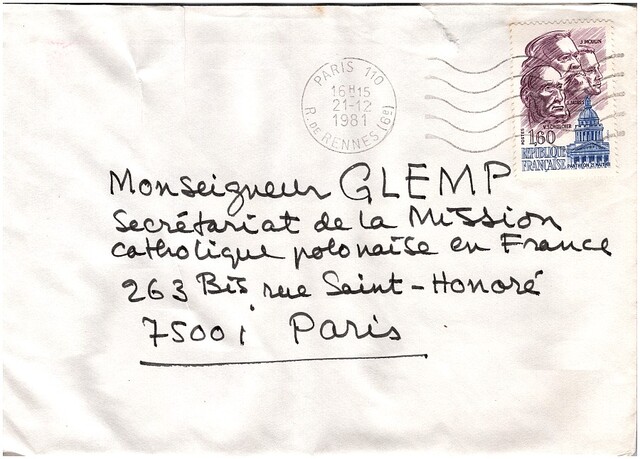 PARIS 110
16H15
21-12
1981
R. DE RENNES (6e)
J. MOULIN
V. SCHŒLCHER
POSTES 1,60
RÉPUBLIQUE
FRANÇAISE
Monseigneur GLEMP
Secrétariat de la Mission
catholique polonaise en France
263 Bis rue Saint-Honoré
75001 Paris